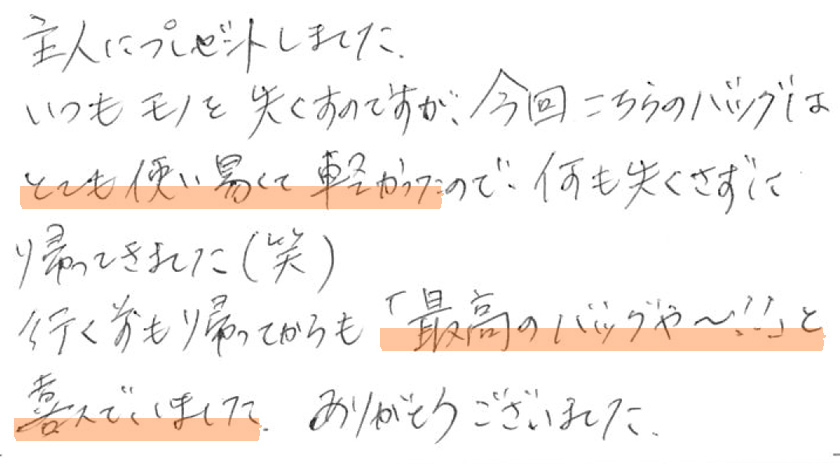 主人にプレゼントしました.
いつもモノを失くすのですが、今回こちらのバッグは
とても使い易くて軽かったので、何も失くさずに
帰ってきました(笑)
行く前も帰ってからも「最高のバッグや〜!!」と
喜んでいました. ありがとうございました.